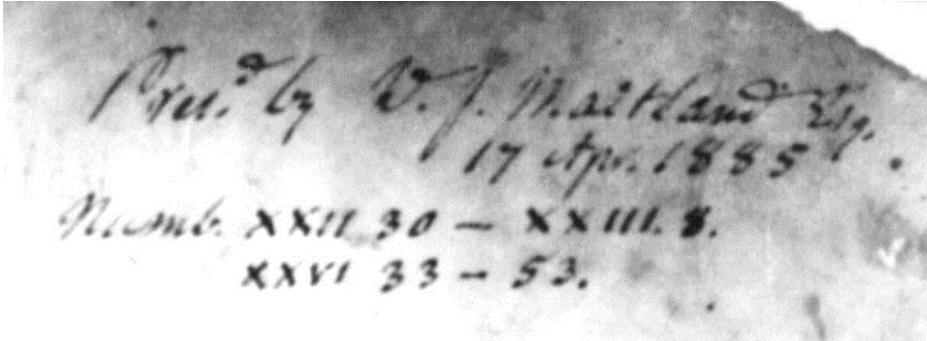 Pres.d by W. J. Maitland Esq.
17 Apr. 1885
Numb. XXII 30 – XXIII. 8.
XXVI 33 – 53.